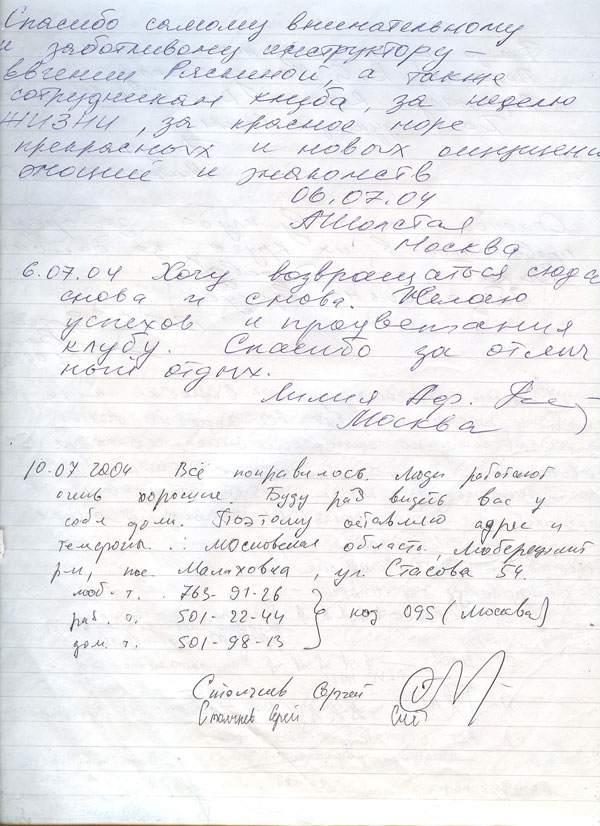 Спасибо самому внимательному
и заботливому инструктору –
Евгении Ряскиной, а также
сотрудникам клуба, за неделю
ЖИЗНИ, за красное море
прекрасных и новых ощущени
эмоций и знакомств
06.07.04
АШолстая
Москва
6.07.04 Хочу возвращаться сюда
снова и снова. Желаю
успехов и процветания
клубу. Спасибо за отлич
ный отдых.
Лилия
Москва
10.07 2004 Всё понравилось. Люди работают
очень хорошие. Буду рад видеть вас у
себя дома. Поэтому оставляю адрес и
телефоны. : Московская область, Люберецкий
р-н, пос. Малаховка, ул. Стасова 54.
моб. т. . 763-91-26
раб. т. 501-22-44 } код 095 (Москва)
дом. т. 501-98-13
Сергей
Сергей